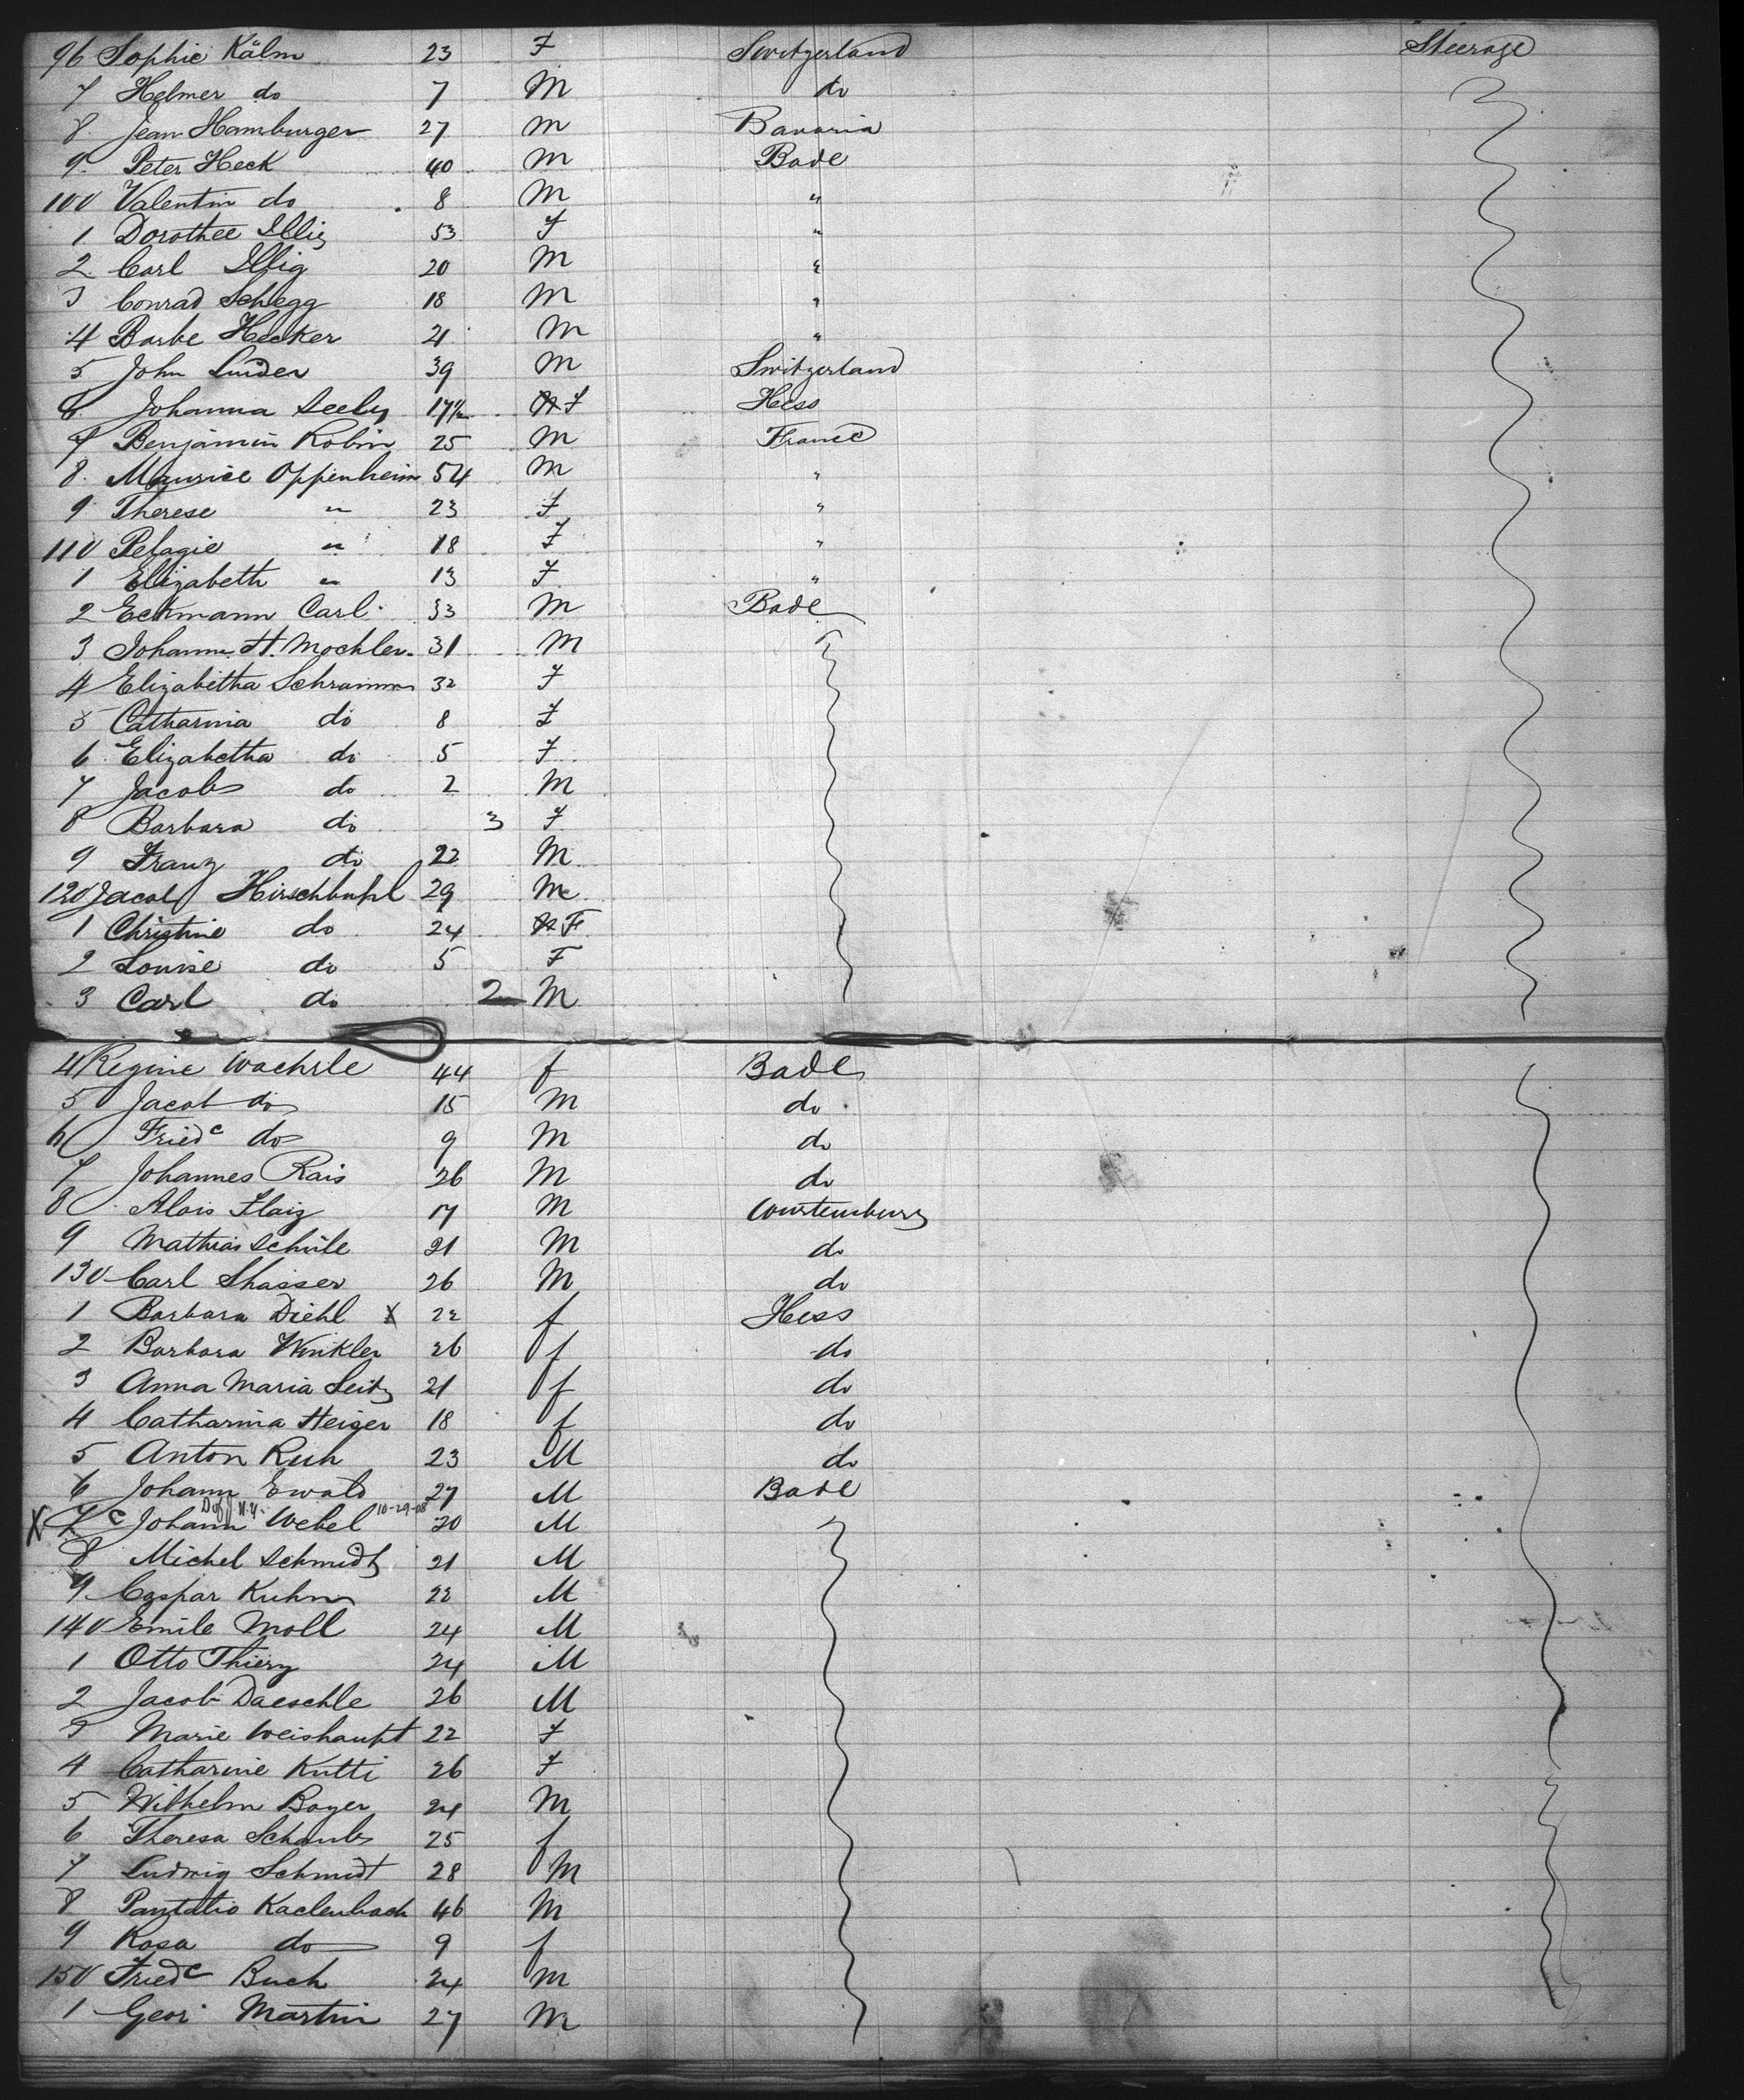 96 Sophie Kälm 23 F Switzerland Steerage
7 Helmer do 7 M do
8. Jean Hamburger 27 M Bavaria
9. Peter Heck 40 M Bade
100 Valentin do 8 M "
1. Dorothee Illig 53 F "
2. Carl Illig 20 M "
3 Conrad Schlegg 18 M "
4 Barbe Hecker 21 M "
5 John Luider 39 M Switzerland
6 Johanna Seely 17½ F Hess
7 Benjamin Robin 25 M France
8. Maurice Oppenheim 54 M "
9 Therese " 23 F "
110 Pelagie " 18 F "
1 Elizabeth " 13 F "
2 Eckmann Carl 33 M Bade
3 Johann H. Mochler 31 M
4 Elizabetha Schramm 32 F
5 Catharina do 8 F
6 Elizabetha do 5 F
7 Jacob do 2 M
8 Barbara do 3 F
9 Franz do 22 M
120 Jacob Hirschbuhl 29 M
1 Christine do 24 F
2 Louise do 5 F
3 Carl do 2 M
4 Regine Waehrle 44 f Bade
5 Jacob do 15 M do
6 Friedc do 9 M do
7 Johannes Rais 26 M do
8 Alois Flaig 17 M Wurtemburg
9 Mathias Schule 21 M do
130 Carl Shasser 26 M do
1 Barbara Diehl X 22 f Hess
2 Barbara Winkler 26 f do
3 Anna Maria Seitz 21 f do
4 Catharina Heiger 18 f do
5 Anton Ruh 23 M do
6 Johann Ewald 27 M Bade
X 7 c Johann Webel 10-29-08 20 M
8 Michel Schmidt 21 M
9. Caspar Kuhn 22 M
140 Emile Moll 24 M
1 Otto Thiery 24 M
2 Jacob Daeschle 26 M
3 Marie Weishaupt 22 F
4 Catharine Kutti 26 F
5 Wilhelm Boyer 24 M
6 Theresa Schaub 25 f
7 Ludwig Schmidt 28 M
8 Pantalio Kaclenbach 46 M
9 Rosa do 9 f
150 Friedc Buch 24 M
1 Geor Martin 27 M